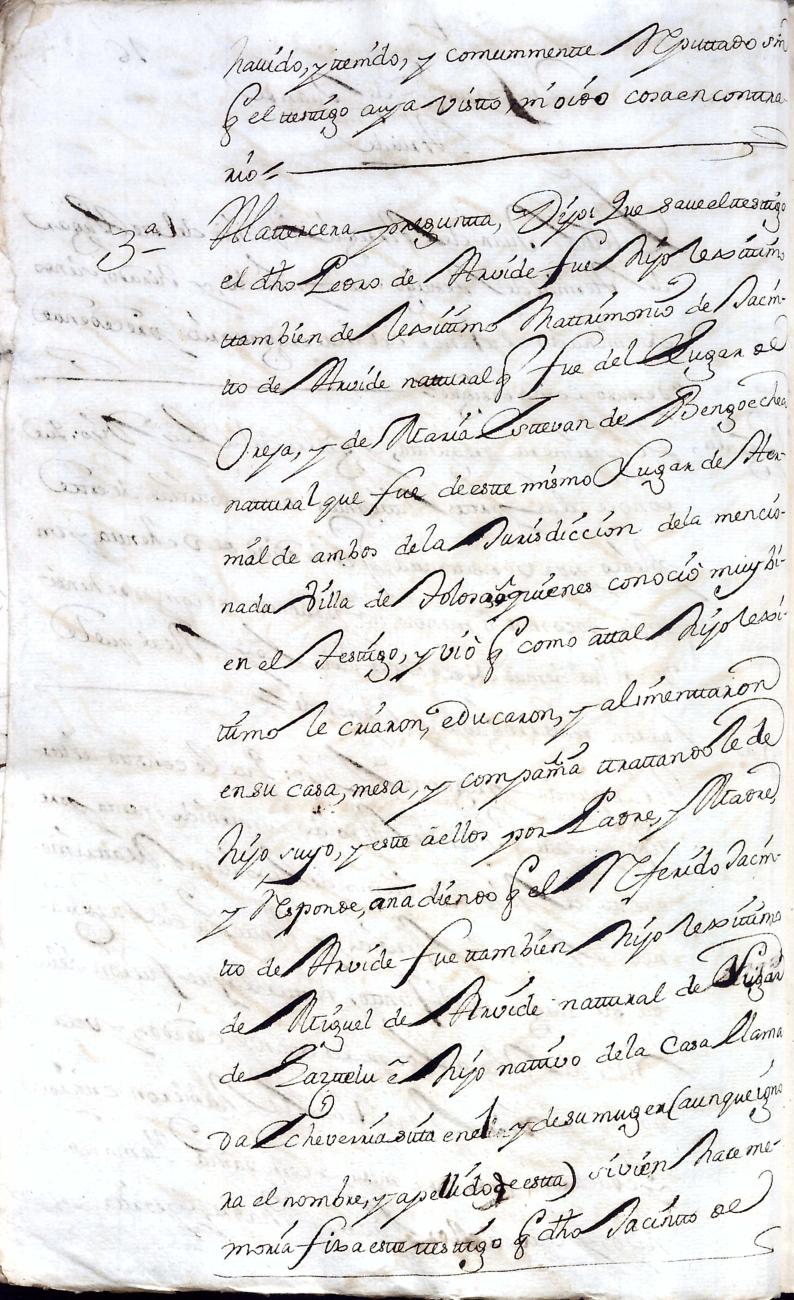 havido, y tenido, y comummentte Reputtado sin
q̃ el testigo aya visto, ni oido cosa en contra
rio =
3ª A la ttercera preguntta, Dijo: Que save el testigo
el dho Pedro de Arvide fue hijo lexitimo
ttambien de lexitimo Mattrimonio de Jacin-
tto de Arvide nattural q̃ fue del Lugar de
Oreja, y de Maria Esttevan de Bengoechea
nattural que fue de este mismo Lugar de Her-
nialde ambos de la Jurisdiccion de la mencio-
nada Villa de Tolosa, a quienes conociò muy bi-
en el Testigo, y viò q̃ como a ttal hijo lexi-
timo le criaron, educaron, y alimenttaron
en su casa, mesa, y compañia ttrattandole de
hijo suyo, y estte à ellos por Padre, y Madre,
y Responde, añadiendo q̃ el Referido Jacin-
tto de Arvide fue ttambien hijo lexitimo
de Miguel de Arvide natural de Lugar
de Gaztelu è hijo nattivo de la Casa llama
da Echeverria sita en el y de su muger (aunque igno
ra el nombre, y apellido de esta) si vien hace me-
moria fixa este testigo q̃ dho Jacinto de